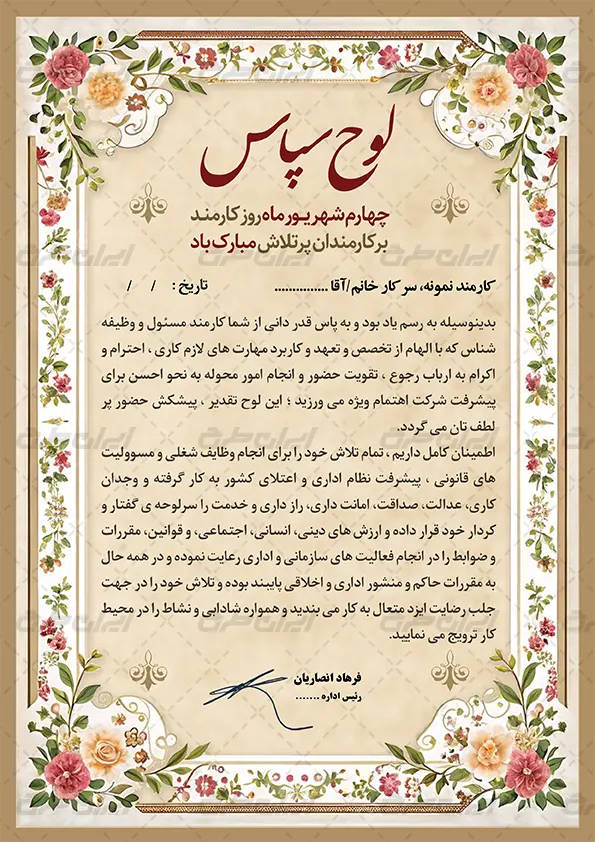 لوح سپاس
چهارم شهریور ماه روز کارمند
بر کارمندان پر تلاش مبارک باد
کارمند نمونه، سرکار خانم/آقا ............... تاریخ : / /
بدینوسیله به رسم یاد بود و به پاس قدر دانی از شما کارمند مسئول و وظیفه
شناس که با الهام از تخصص و تعهد و کاربرد مهارت های لازم کاری ، احترام و
اکرام به ارباب رجوع ، تقویت حضور و انجام امور محوله به نحو احسن برای
پیشرفت شرکت اهتمام ویژه می ورزید ؛ این لوح تقدیر ، پیشکش حضور پر
لطف تان می گردد.
اطمینان کامل داریم ، تمام تلاش خود را برای انجام وظایف شغلی و مسوولیت
های قانونی ، پیشرفت نظام اداری و اعتلای کشور به کار گرفته و وجدان
کاری، عدالت، صداقت، امانت داری، راز داری و خدمت را سرلوحه ی گفتار و
کردار خود قرار داده و ارزش های دینی، انسانی، اجتماعی، و قوانین، مقررات
و ضوابط را در انجام فعالیت های سازمانی و اداری رعایت نموده و در همه حال
به مقررات حاکم و منشور اداری و اخلاقی پایبند بوده و تلاش خود را در جهت
جلب رضایت ایزد متعال به کار می بندید و همواره شادابی و نشاط را در محیط
کار ترویج می نمایید.
فرهاد انصاریان
رئیس اداره .......